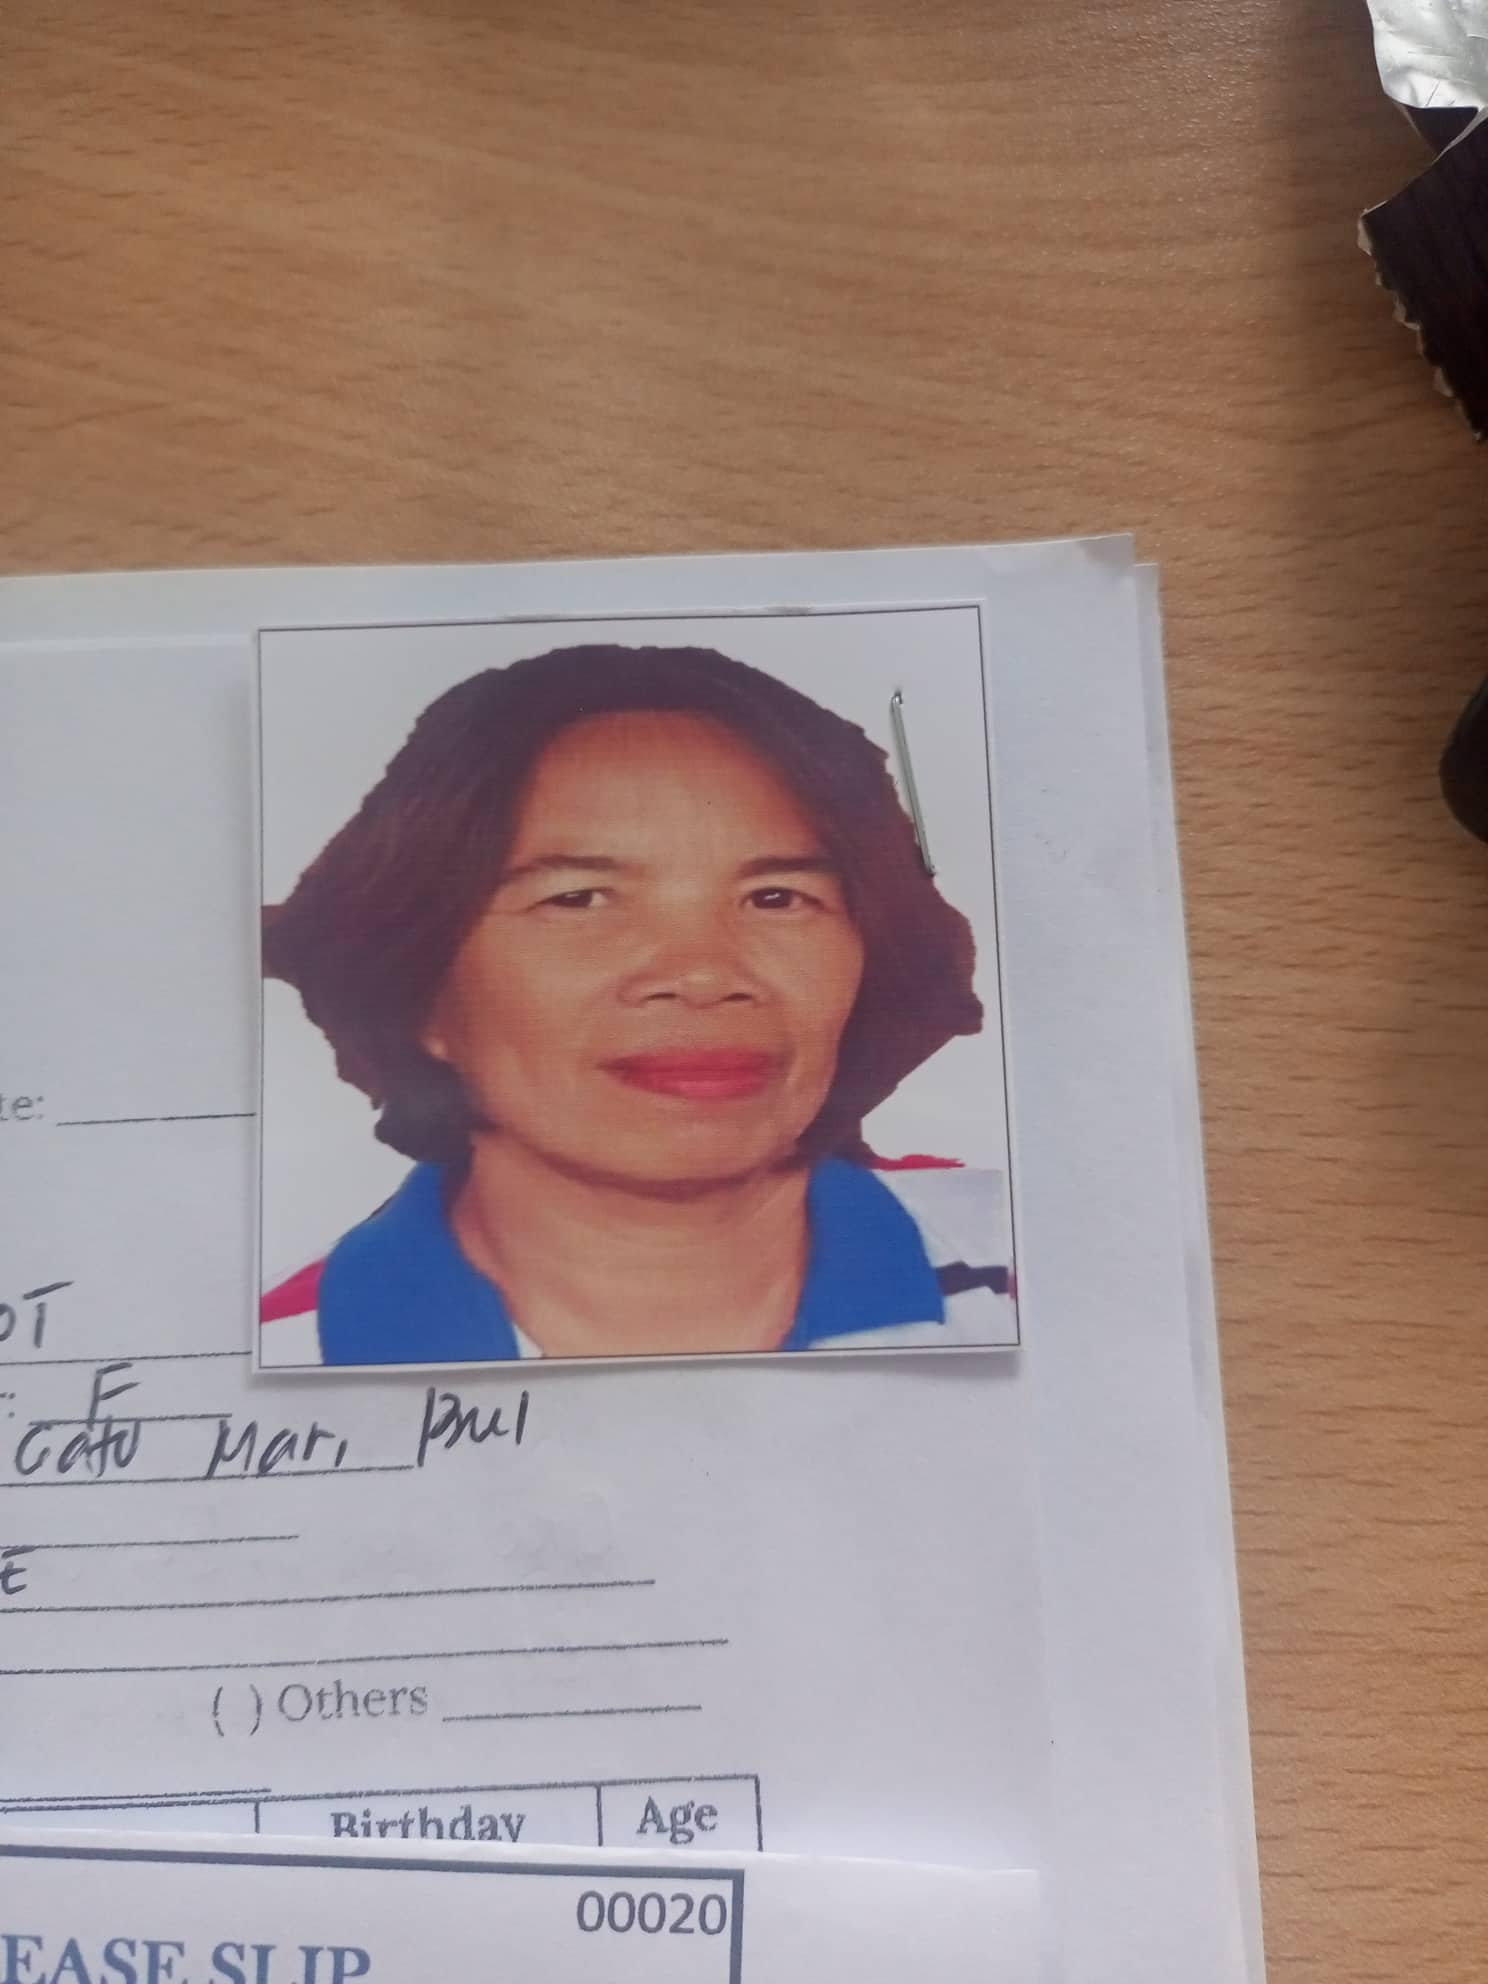 te:
OT
: F
Cato Mar, Bul
E
( ) Others
Birthday Age
00020
EASE SLIP